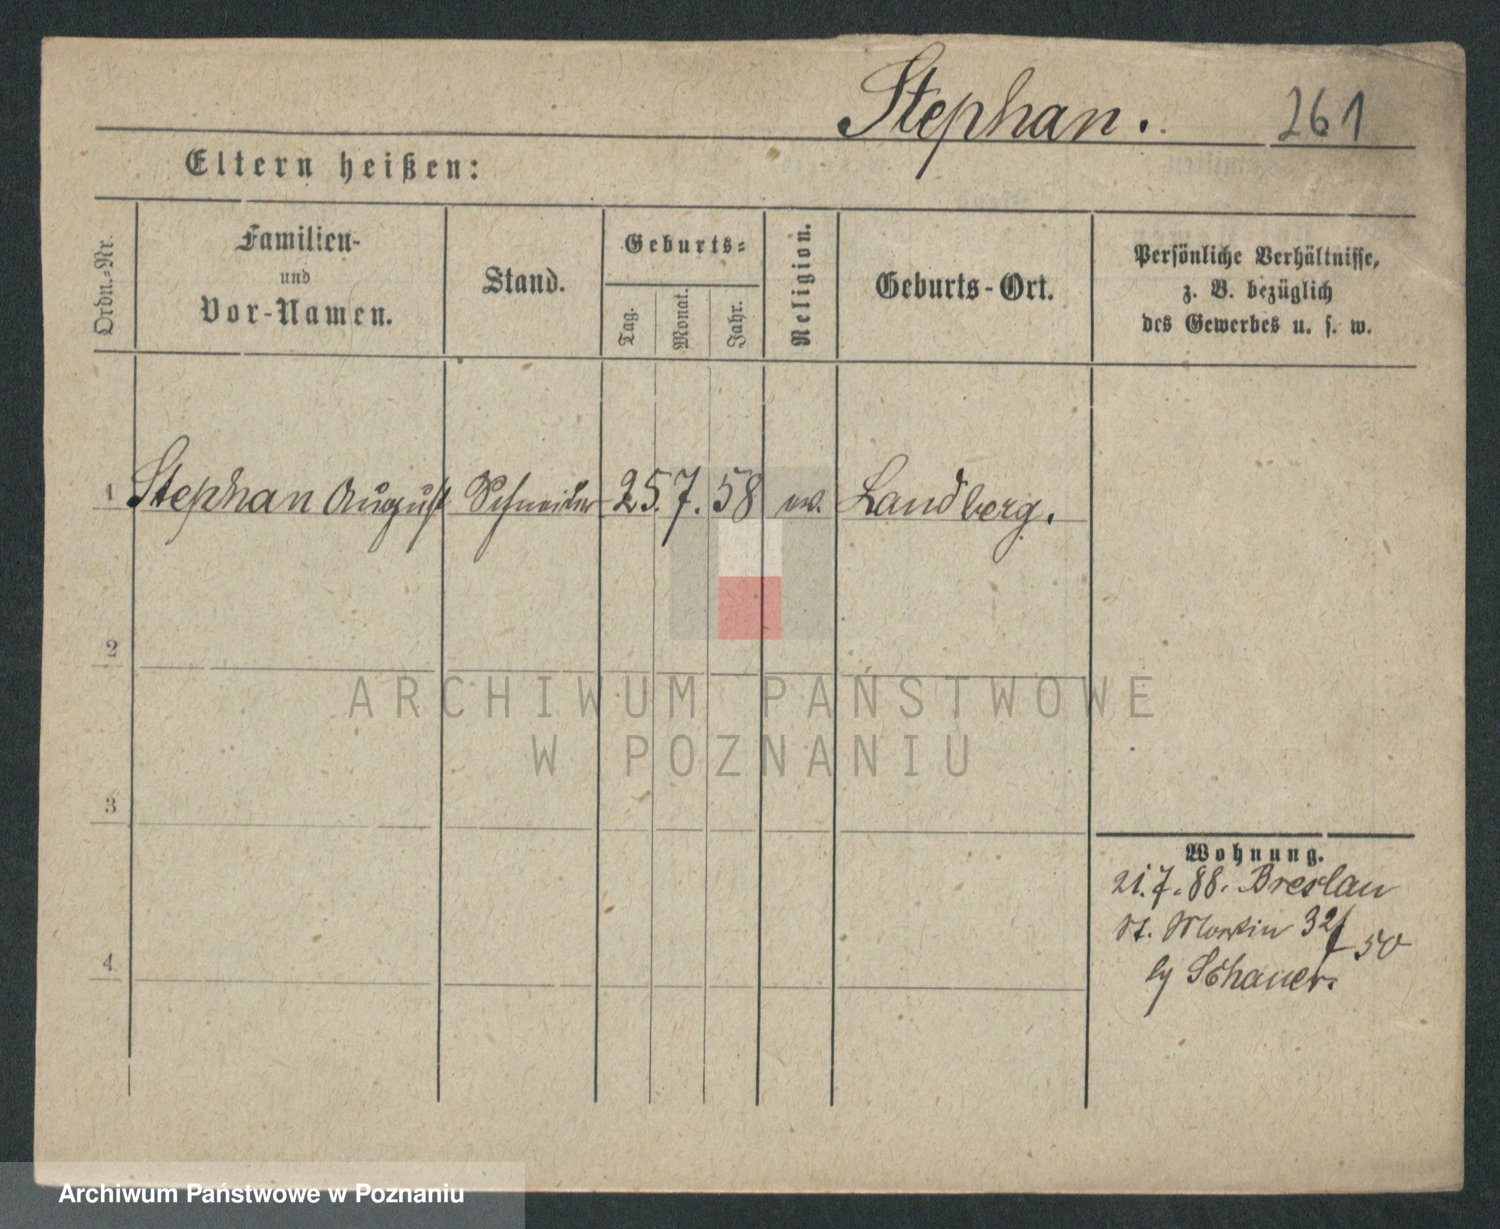 Stephan. 261
Eltern heißen:
Ordn.-Nr.
Familien-
und
Vor-Namen.
Stand.
Geburts-
Tag.
Monat.
Jahr.
Religion.
Geburts-Ort.
Persönliche Verhältnisse,
z. B. bezüglich
des Gewerbes u. s. w.
1 Stephan August Schneider 25. 7. 58 ev. Landberg.
2
ARCHIWUM PAŃSTWOWE
W POZNANIU
3
Wohnung.
21.7.88. Breslau
St. Martin 32/
50
Schauer.
4
Archiwum Państwowe w Poznaniu